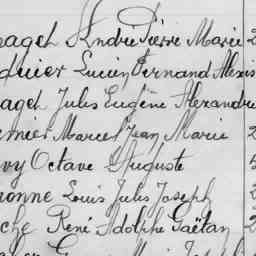 aget André Pierre Marie 2
quier Lucien Fernand Alexis
aget Jules Eugène Alexandre
rnier Marcel Jean Marie 2
vy Octave Auguste
onne Louis Jules Joseph
che René Adolphe Gaëtan 2